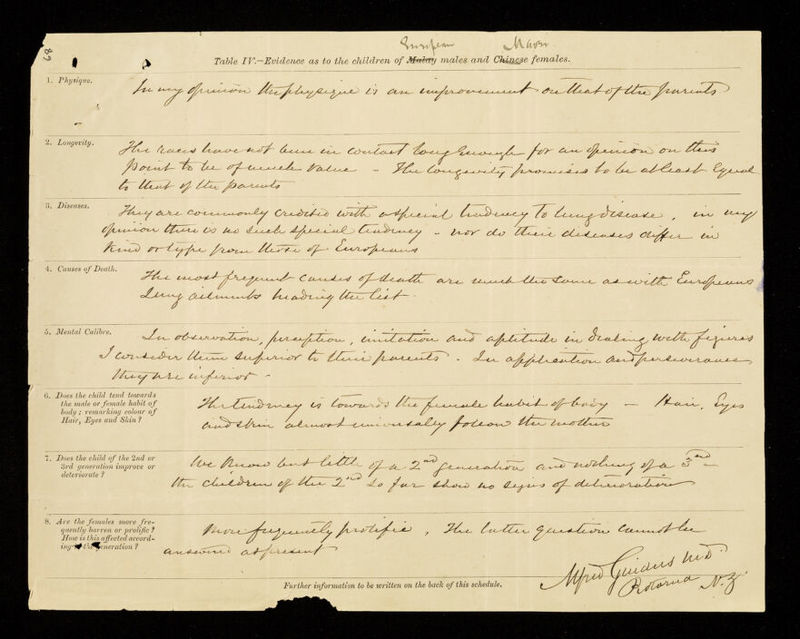 89
European Maori
Table IV.—Evidence as to the children of Malay males and Chinese females.
1. Physique.
In my opinion the physique is an improvement on that of the parents
2. Longevity.
The races have not been in contact long enough for an opinion on this
point to be of much value - The longevity promises to be at least equal
to that of the parents
3. Diseases.
They are commonly credited with a special tendency to lung disease, in my
opinion there is no such special tendency - nor do their diseases differ in
kind or type from those of Europeans
4. Causes of Death.
The most frequent causes of death are much the same as with Europeans
Lung ailments heading the list -
5. Mental Calibre.
In observation, perception, imitation and aptitude in dealing with figures
I consider them superior to their parents. In application and perseverance
they are inferior -
6. Does the child tend towards
the male or female habit of
body; remarking colour of
Hair, Eyes and Skin?
The tendency is towards the female habit of body — Hair, Eyes
and skin almost universally follow the mother
7. Does the child of the 2nd or
3rd generation improve or
deteriorate?
We know but little of a 2nd generation and nothing of a 3rd -
the children of the 2nd so far show no signs of deterioration
8. Are the females more fre-
quently barren or prolific?
How is this affected accord-
ing to the generation?
More frequently prolific, The latter question cannot be
answered at present
Alfred Ginders M.D.
Rotorua N.Z.
Further information to be written on the back of this schedule.